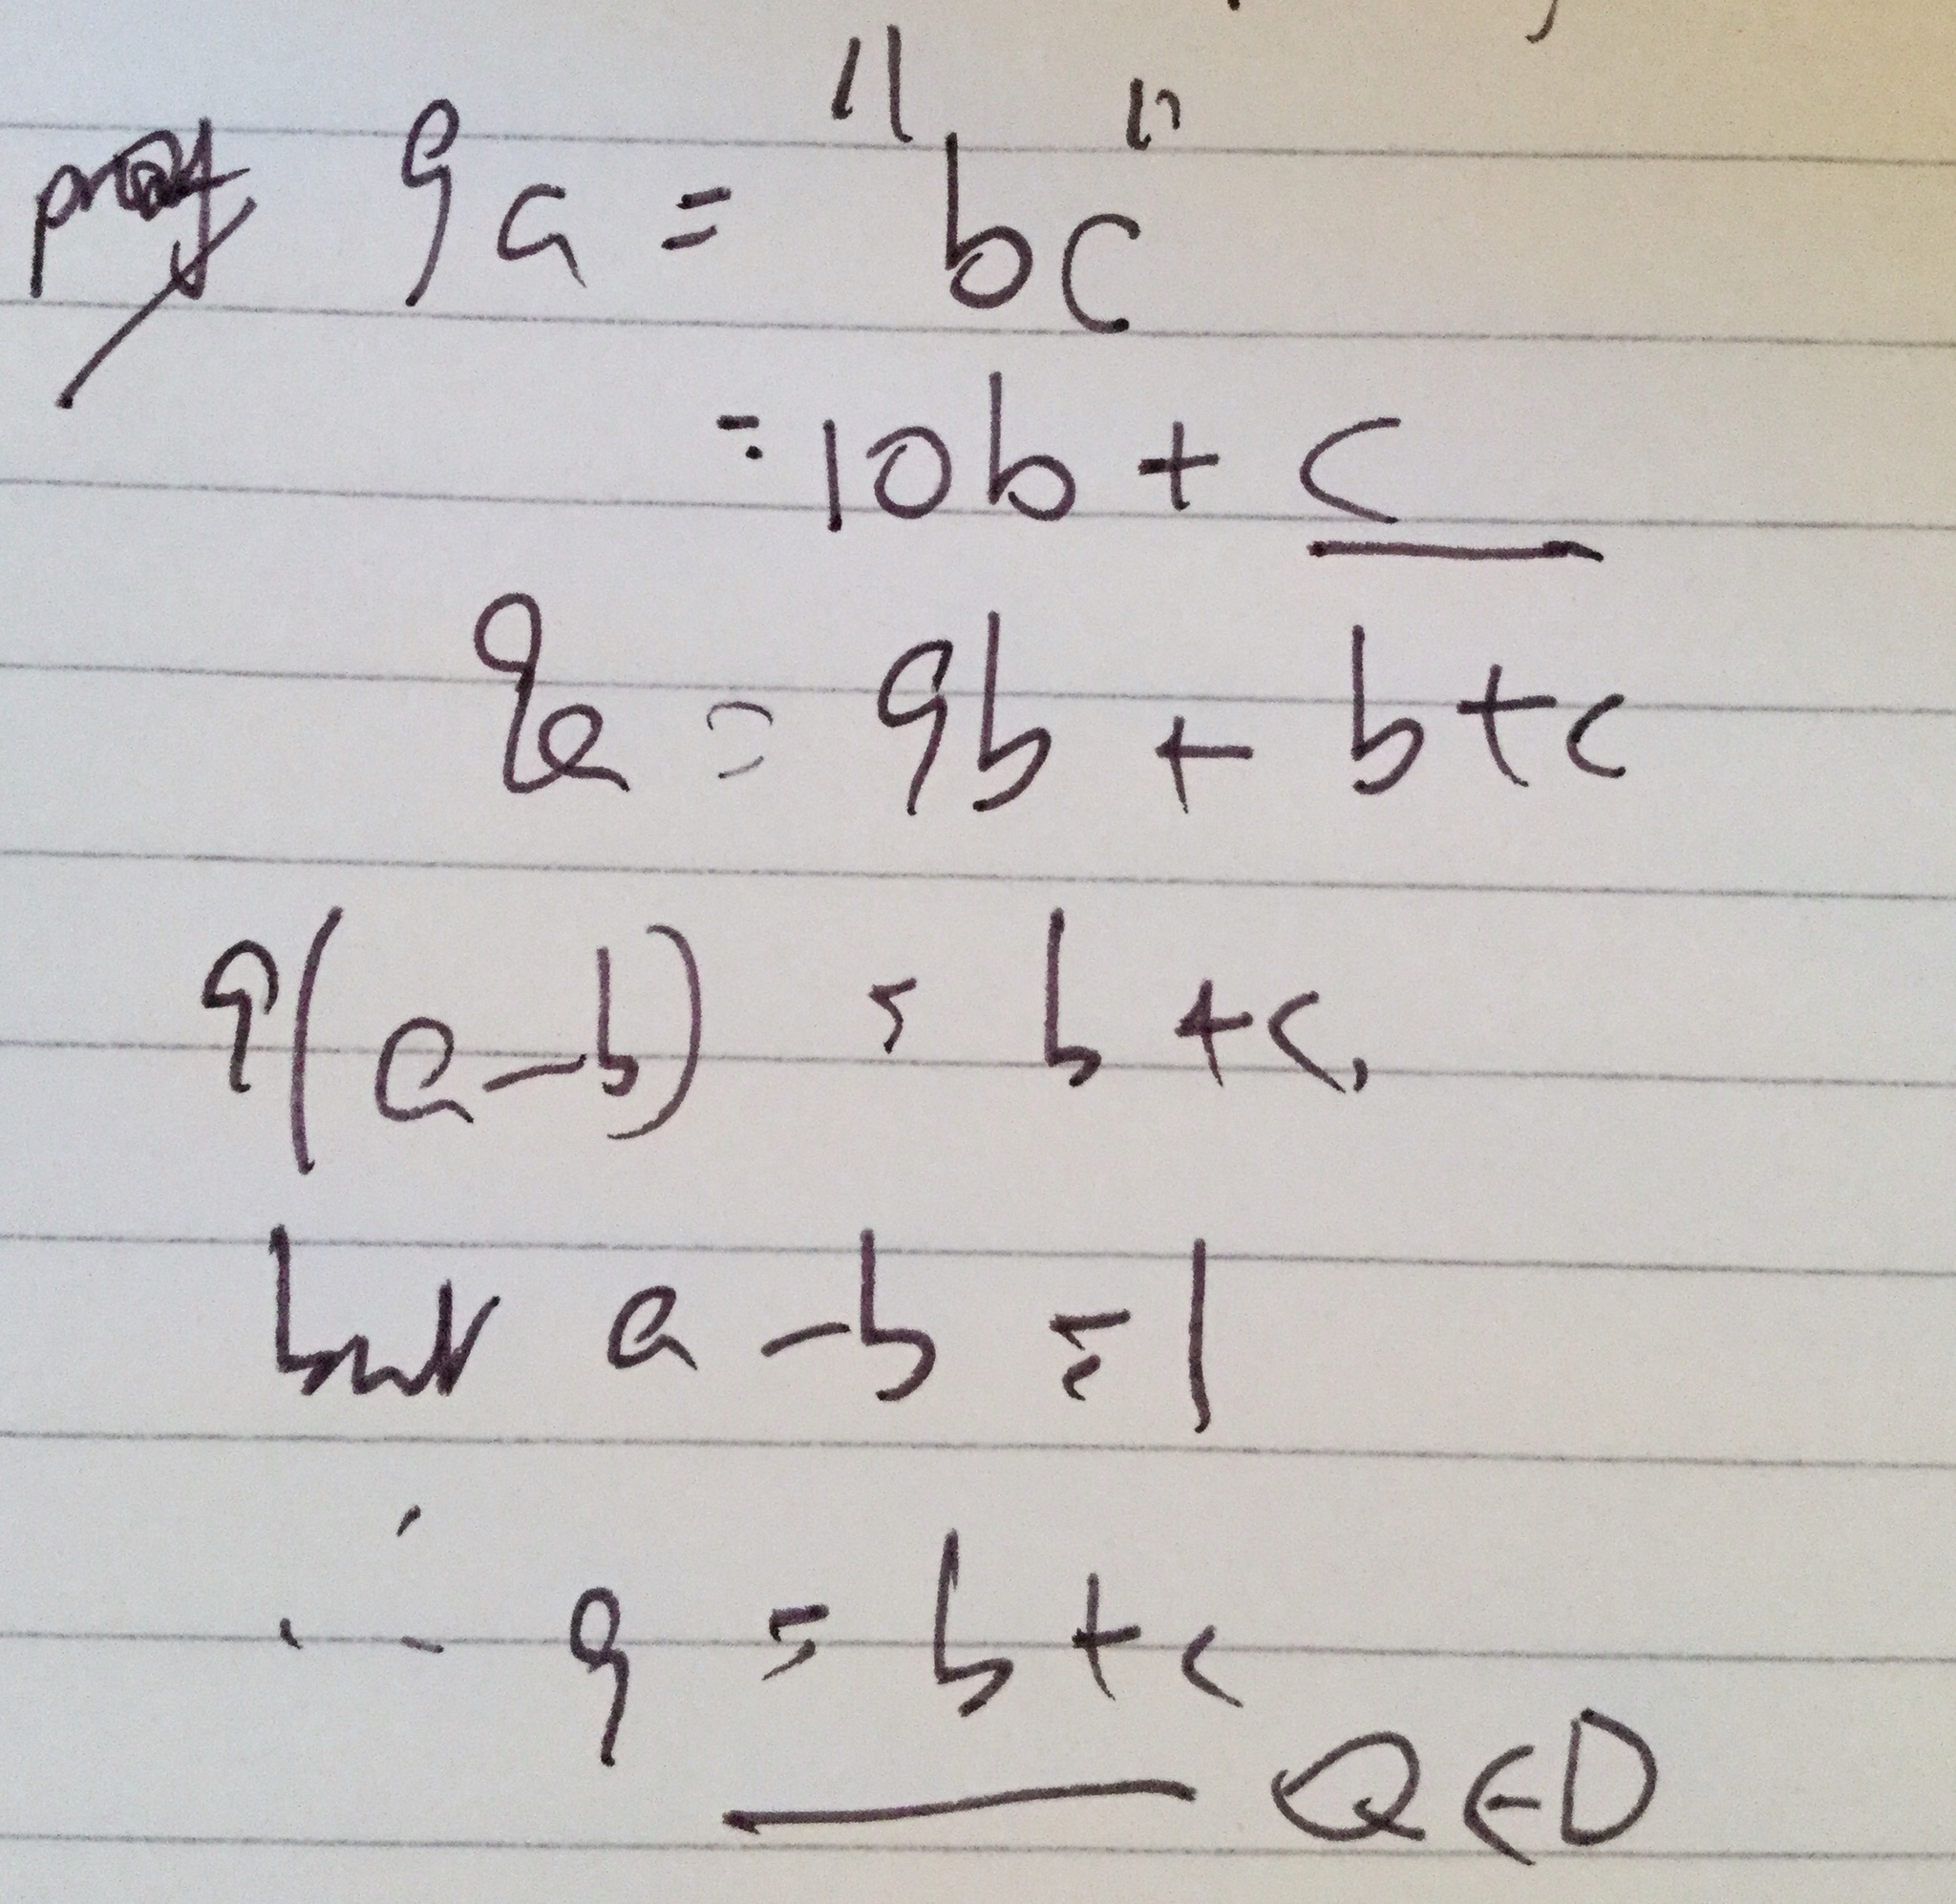 proof 9a = "bc"
= 10b + c
9a = 9b + b+c
9(a-b) = b+c,
but a-b = 1
∴ 9 = b+c
QED